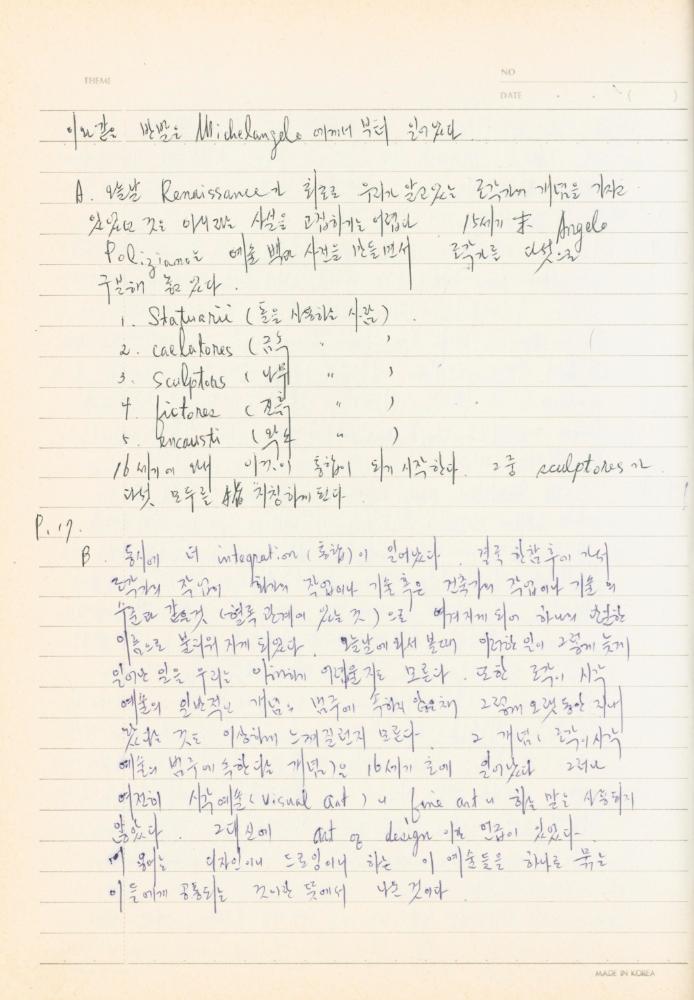 THEME
NO
DATE . . ( )
이와같은 반발은 Michelangelo 에게서 부터 일어났다
A. 오늘날 Renaissance가 최초로 우리가 알고있는 조각가의 개념을 가지고
있었던 것은 아니라는 사실을 고집하기는 어렵다 15세기 末 Angelo
Poliziano는 예술 백과 사전을 만들면서 조각가를 다섯으로
구분해 놓고 있다.
1. Statuarii (돌을 사용하는 사람)
2. caelatores (금속 〃 )
3. sculptors (나무 〃 )
4. fictores (진흙 〃 )
5. encausti (왁스 〃 )
16세기에 와서 이것이 통합이 되기 시작한다. 그중 sculptores가
다섯 모두를 지칭하게 된다.
P. 17.
B. 동시에 더 integration (통합)이 일어났다. 결국 한참후에 가서
조각가의 작업이 화가의 작업이나 기술 혹은 건축가의 작업이나 기술의
수준과 같은것 (혈족 관계에 있는 것)으로 여겨지게 되어 하나의 단일한
이름으로 불리워 지게 되었다. 오늘날에 와서 볼때 이러한 일이 그렇게 늦게
일어난 일을 우리는 이해하기 어려울지도 모른다. 또한 조각이 시각
예술의 일반적인 개념의 범주에 속하지 않은채 그렇게 오랫동안 지내
왔다는 것도 이상하게 느껴질런지 모른다. 그 개념 (조각이 시각
예술의 범주에 속한다는 개념)은 16세기 초에 일어났다 그러나
여전히 시각예술(visual art)니 fine art니 하는 말은 사용되지
않았다. 그대신에 art of design 이란 언급이 있었다.
이 용어는 디자인이니 드로잉이니 하는 이 예술들을 하나로 묶는
이들에게 공통되는 것이란 뜻에서 나온 것이다
MADE IN KOREA